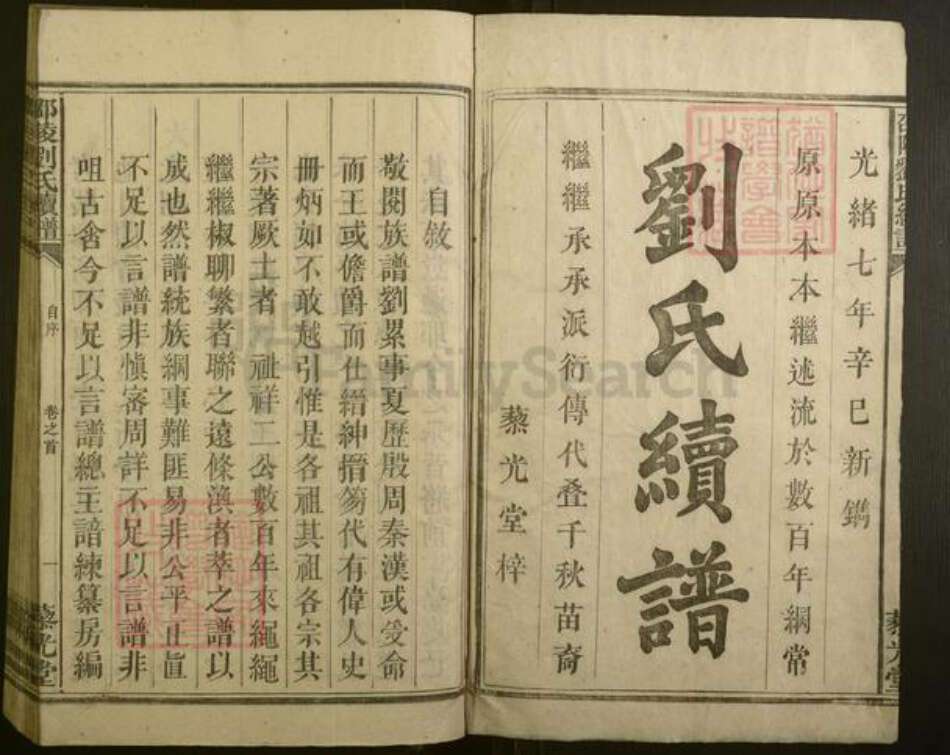 光緒七年辛巳新鐫
原原本本繼述流於數百年綱常
劉氏續譜
繼繼承承派衍傳代叠千秋苗裔
藜光堂梓
藜光堂
自敘
敬閱族譜劉累事夏歷殷周秦漢或受命
而王或儋爵而仕縉紳搢笏代有偉人史
冊炳如不敢越引惟是各祖其祖各宗其
宗著厥土者 祖祥工公數百年來繩繩
繼繼椒聊繁者聯之遠條渙者萃之譜以
成也然譜統族綱事難匪易非公平正直
不足以言譜非慎審周詳不足以言譜非
咀古含今不足以言譜總主諳練纂房編
邵陵劉氏續譜
自序
卷之首
一
藜光堂
FamilySearch